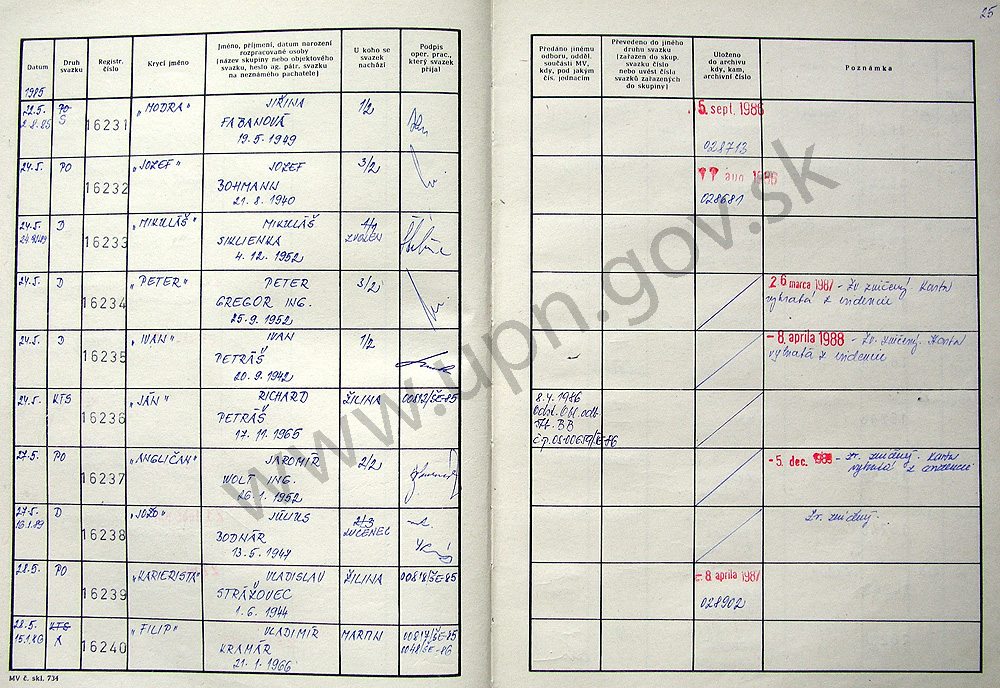 25
Datum
Druh svazku
Registr. číslo
Krycí jméno
Jméno, příjmení, datum narození
rozpracované osoby
(název skupiny nebo objektového
svazku, heslo ag. pátr. svazku
na neznámého pachatele)
U koho se
svazek
nachází
Podpis
oper. prac.,
který svazek
přijal
Předáno jinému
odboru, odděl.
součásti MV,
kdy, pod jakým
čís. podacím
Převedeno do jiného
druhu svazku
(zařazen do skup.
svazku číslo
nebo uvést čísla
svazků zařazených
do skupiny)
Uloženo
do archivu
kdy, kam,
archivní číslo
Poznámka
1985
22.5. PO 16231 „MODRA" JIŘINA 1/2 5. sept. 1986
2.8.85 S FABANOVÁ
19.5.1949 028713
24.5. PO 16232 „JOZEF" JOZEF 3/2 aug 1986
BOHMANN 028681
21.8.1940
24.5. D 16233 „MIKULÁŠ" MIKULÁŠ 1/1
SIKLIENKA ZVOLEN
4.12.1952
24.5. D 16234 „PETER" PETER 3/2 26 marca 1987 - Zv zničený Karta
GREGOR ING. vybratá z evidencie
25.9.1952
24.5. D 16235 „IVAN" IVAN 1/2 - 8. apríla 1988 - Zv. zničený. Karta
PETRÁŠ vybratá z evidencie
20.9.1942
24.5. KTS 16236 „JÁN" RICHARD ŽILINA 00812/ŠE-85 8.4.1986
PETRÁŠ
17.11.1965 BB
27.5. PO 16237 „ANGLIČAN" JAROMÍR 2/2 - 5. dec. - Zv. zničený. Karta
WOLT ING. vybratá z evidencie
26.1.1952
27.5. D 16238 „JOŽO" JÚLIUS 2/3 Zv. zničený.
16.1.89 BODNÁR LUČENEC
13.5.1947
28.5. PO 16239 „KARIERISTA" VLADISLAV ŽILINA 00818/ŠE-85 - 8. apríla 1987
STRÁŽOVEC 028902
1.6.1944
28.5. KTS 16240 „FILIP" VLADIMÍR MARTIN 00817/ŠE-85
15.1.86 A KRAMÁR 0048/ŠE-86
21.1.1966
MV č. skl. 734
www.upn.gov.sk